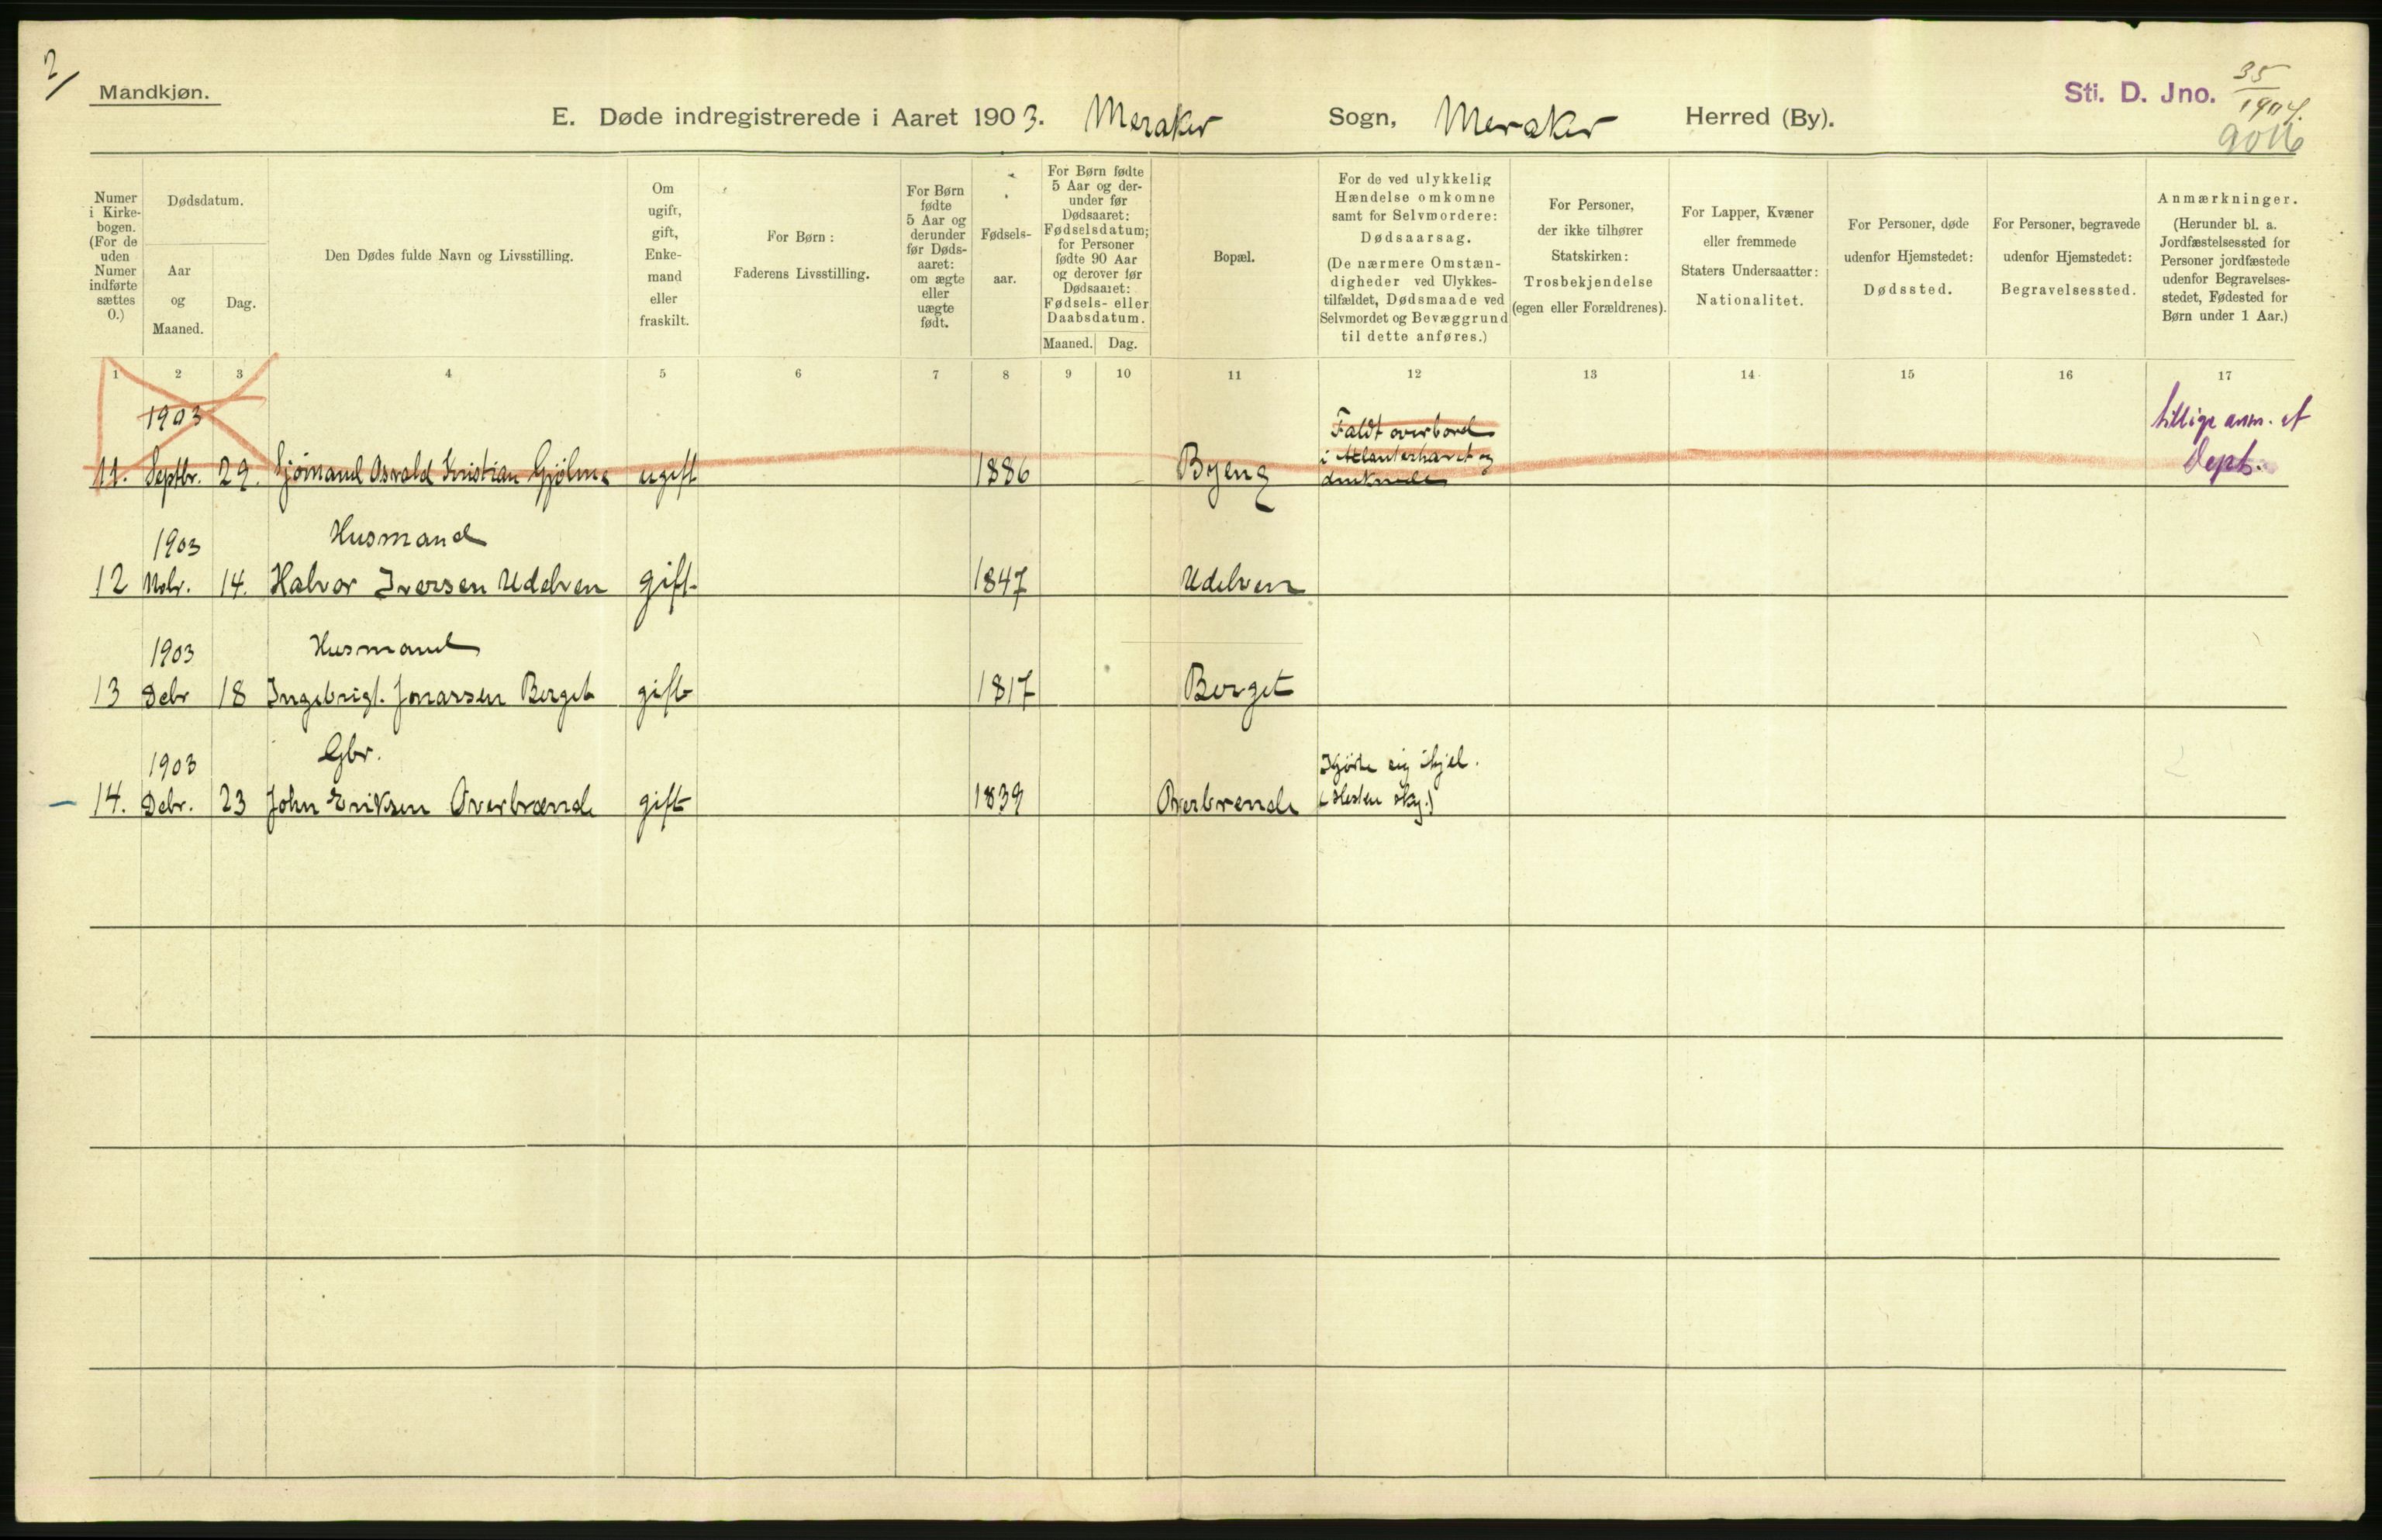 2/
Mandkjøn.
E. Døde indregistrerede i Aaret 1903. Meraker Sogn, Meraker Herred (By).
Sti. D. Jno. 35
1904.
Numer
i Kirke-
bogen.
(For de
uden
Numer
indførte
sættes
0.)
Dødsdatum.
Aar
og
Maaned.
Dag.
Den Dødes fulde Navn og Livsstilling.
Om
ugift,
gift,
Enke-
mand
eller
fraskilt.
For Børn:
Faderens Livsstilling.
For Børn
fødte
5 Aar og
derunder
før Døds-
aaret:
om ægte
eller
uægte
født.
Fødsels-
aar.
For Børn fødte
5 Aar og der-
under før
Dødsaaret:
Fødselsdatum;
for Personer
fødte 90 Aar
og derover før
Dødsaaret:
Fødsels- eller
Daabsdatum.
Maaned. Dag.
Bopæl.
For de ved ulykkelig
Hændelse omkomne
samt for Selvmordere:
Dødsaarsag.
(De nærmere Omstæn-
digheder ved Ulykkes-
tilfældet, Dødsmaade ved
Selvmordet og Bevæggrund
til dette anføres.)
For Personer,
der ikke tilhører
Statskirken:
Trosbekjendelse
(egen eller Forældrenes).
For Lapper, Kvæner
eller fremmede
Staters Undersaatter:
Nationalitet.
For Personer, døde
udenfor Hjemstedet:
Dødssted.
For Personer, begravede
udenfor Hjemstedet:
Begravelsessted.
Anmærkninger.
(Herunder bl. a.
Jordfæstelsessted for
Personer jordfæstede
udenfor Begravelses-
stedet, Fødested for
Børn under 1 Aar.)
1 2 3 4 5 6 7 8 9 10 11 12 13 14 15 16 17
1903
Faldt overbord
i Atlanterhavet og
druknede
tillige anm. af
Dept.
11. Septbr. 29. Sjømand Osvald Kristian Gjølme ugift 1886 Byeng
1903 Husmand
12 Nvbr. 14. Halvor Iversen Udelven gift 1847 Udelven
1903 Husmand
13 Debr 18 Ingebrigt. Jonassen Berget gift 1817 Berget
1903 Gbr. Kjørte sig ihjel.
14. Debr. 23 John Eriksen Overbrænde gift 1839 Overbrende (Hesten sky.)